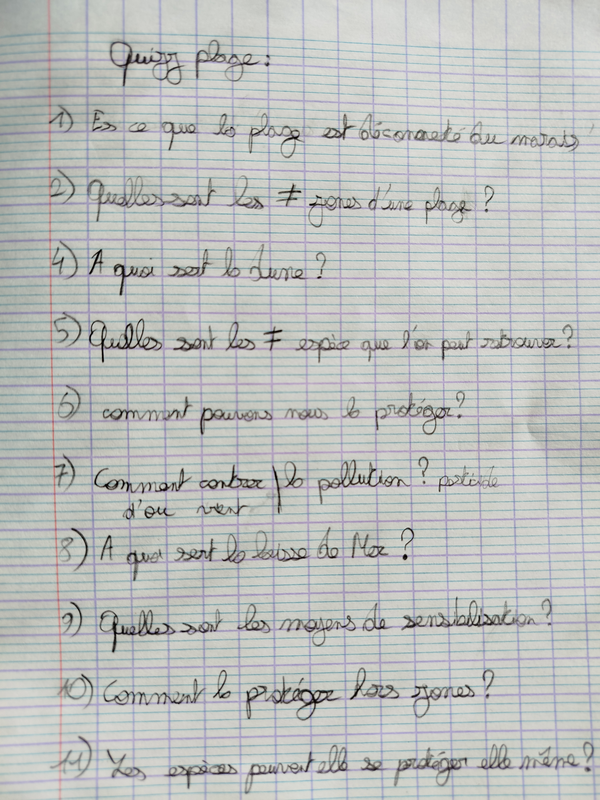 Quizz plage :
1) Es ce que la plage est déconnecté du marais
2) Quelles sont les ≠ zones d'une plage ?
4) A quoi sert la dune ?
5) Quelles sont les ≠ espèce que l'on peut retrouver ?
6) comment pouvons nous la protéger ?
7) Comment contrer la pollution ?
d'où vient
8) A quoi sert la laisse de Mer ?
9) Quelles sont les moyens de sensibilisation ?
10) Comment la protéger hors zones ?
11) Les espèces peuvent elle se protéger elle même ?